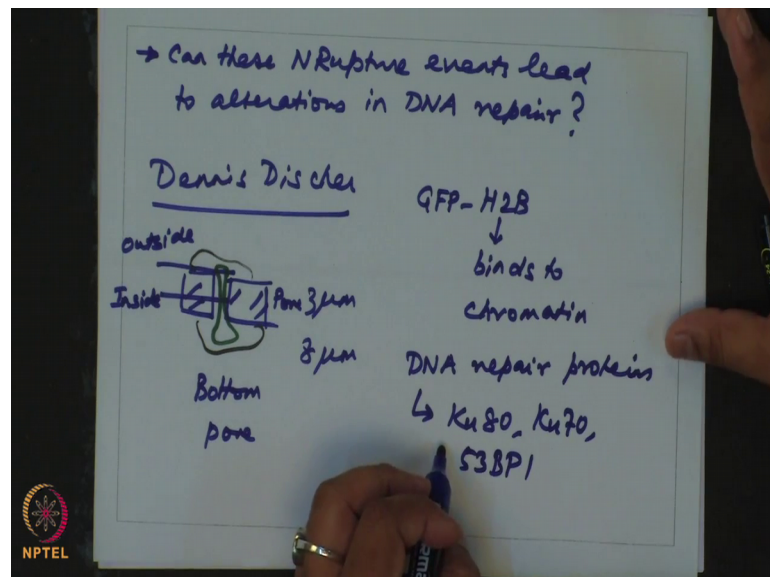 → Can these NRupture events lead
to alterations in DNA repair?
Dennis Discher
Outside
Inside
Pore 3 μm
8 μm
Bottom
pore
GFP-H2B
↓
binds to
chromatin
DNA repair proteins
↳ Ku80, Ku70,
53BP1
NPTEL